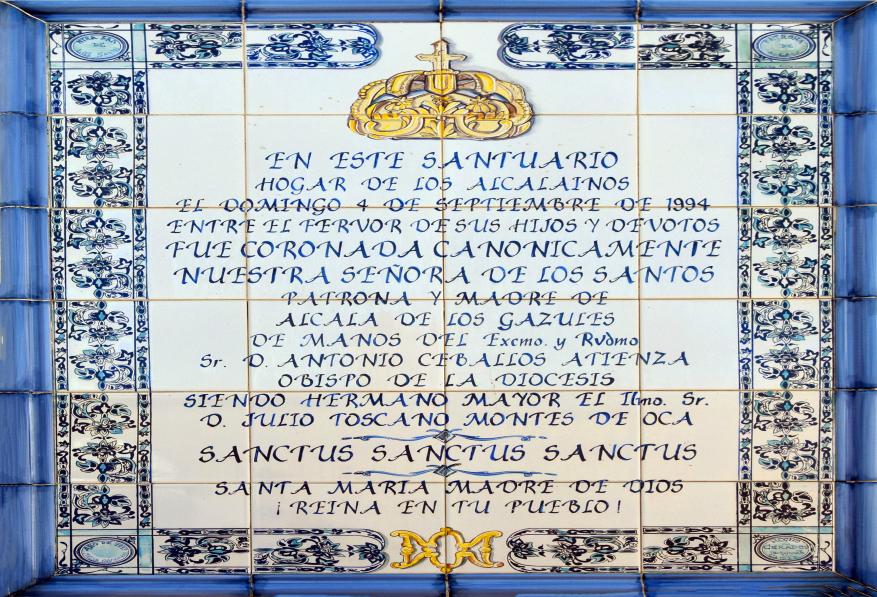 EN ESTE SANTUARIO
HOGAR DE LOS ALCALAINOS
EL DOMINGO 4 DE SEPTIEMBRE DE 1994
ENTRE EL FERVOR DE SUS HIJOS Y DEVOTOS
FUE CORONADA CANONICAMENTE
NUESTRA SEÑORA DE LOS SANTOS
PATRONA Y MADRE DE
ALCALA DE LOS GAZULES
DE MANOS DEL Excmo. y Rvdmo
Sr. D. ANTONIO CEBALLOS ATIENZA
OBISPO DE LA DIOCESIS
SIENDO HERMANO MAYOR EL Ilmo. Sr.
D. JULIO TOSCANO MONTES DE OCA
SANCTUS SANCTUS SANCTUS
SANTA MARIA MADRE DE DIOS
¡REINA EN TU PUEBLO!